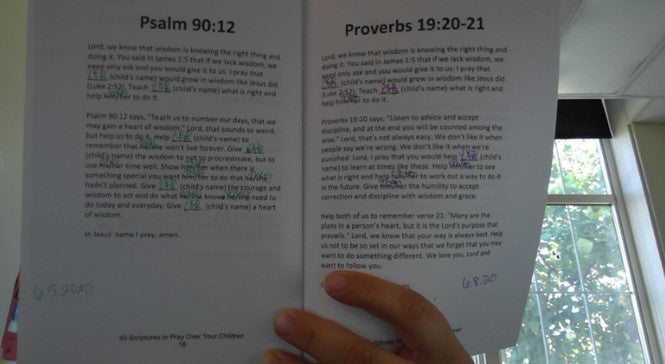 Psalm 90:12
Lord, we know that wisdom is knowing the right thing and
doing it. You said in James 1:5 that if we lack wisdom, we
need only ask and you would give it to us. I pray that
(child's name) would grow in wisdom like Jesus did
(Luke 2:52). Teach (child's name) what is right and
help him/her to do it.
Psalm 90:12 says, "Teach us to number our days, that we
may gain a heart of wisdom." Lord, that sounds so weird,
but help us to do it. Help (child's name) to
remember that he/she won't live forever. Give
(child's name) the wisdom to not to procrastinate, but to
use his/her time well. Show him/her when there is
something special you want him/her to do that he/she
hadn't planned. Give (child's name) the courage and
wisdom to act and do what he/she knows he/she need to
do today and everyday. Give (child's name) a heart
of wisdom.
In Jesus' name I pray, amen.
6.5.2020
40 Scriptures to Pray Over Your Children
18
Proverbs 19:20-21
Lord, we know that wisdom is knowing the right thing and
doing it. You said in James 1:5 that if we lack wisdom, we
need only ask and you would give it to us. I pray that
(child's name) would grow in wisdom like Jesus did
(Luke 2:52). Teach (child's name) what is right and
help him/her to do it.
Proverbs 19:20 says, "Listen to advice and accept
discipline, and at the end you will be counted among the
wise." Lord, that's not always easy. We don't like it when
people say we're wrong. We don't like it when we're
punished. Lord, I pray that you would help (child's
name) to learn at times like these. Help him/her to see
what is right and help him/her to work out a way to do it
in the future. Give him/her the humility to accept
correction and discipline with wisdom and grace.
Help both of us to remember verse 21: "Many are the
plans in a person's heart, but it is the Lord's purpose that
prevails." Lord, we know that your way is always best. Help
us not to be so set in our ways that we forget that you may
want to do something different. We love you, Lord and
want to follow you.
6.8.20
to Pray Over Your Children